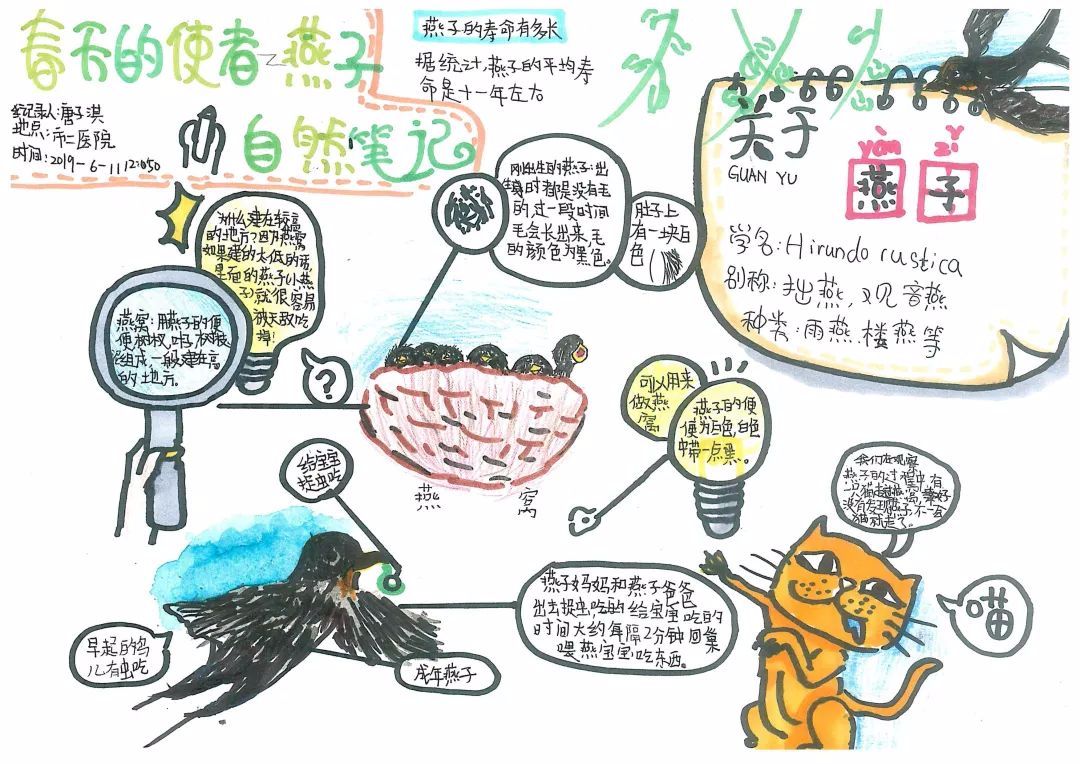 春天的使者-燕子
自然笔记
纪录人:唐子淇
地点:市二医院
时间:2019-6-11 12:050
燕子的寿命有多长
据统计,燕子的平均寿
命是十一年左右
关于
GUAN YU
yàn zǐ
燕子
学名:Hirundo rustica
别称:拙燕,观音燕
种类:雨燕.楼燕等
刚出生的燕子:出
生时都是没有毛
的,过一段时间
毛会长出来,毛
的颜色为黑色。
肚子上
有一块白
色
为什么建在较高
的地方?因为燕窝
如果建的太低的话,
里面的燕子(小燕
子)就很容易
被天敌吃
掉!
燕窝:用燕子的便
便,树杈,叶子,树枝
组成,一般建在高
的土地方。
?
燕窝
可以用来
做燕
窝
燕子的便
便为白色,白色
中带一点黑。
给宝宝
捉虫吃
早起的鸟
儿有虫吃
成年燕子
燕子妈妈和燕子爸爸
出去捉虫吃的给宝宝吃的
时间大约每隔2分钟回巢
喂燕宝宝吃东西。
我们在观察
燕子的过程中,有
一只猫走过燕窝,幸好
没有发现燕子,不一会
猫就走了。
喵